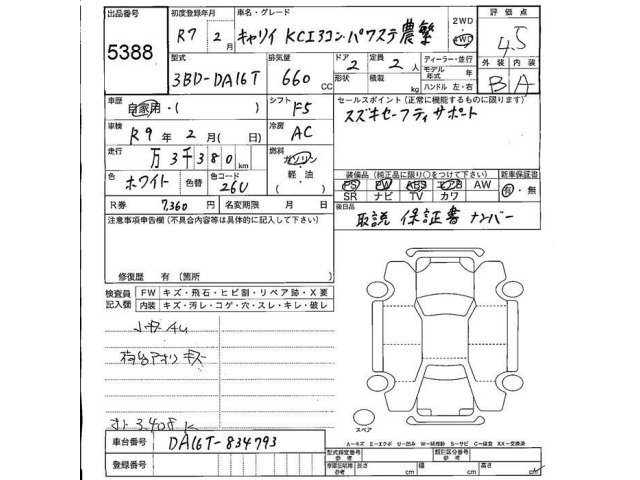 出品番号
5388
初度登録年月
R7 2月
車名・グレード
キャリイ KCエアコン・パワステ農繁
2WD
4WD
評価点
4.5
外装 内装
B A
型式
3BD-DA16T
排気量
660 CC
ドア
2
形状
定員
2人
積載
kg
ディーラー・並行
モデル年式 年
ハンドル 左・右
車歴
自家用・( )
シフト
F5
セールスポイント(正常に機能するものに限ります)
スズキセーフティサポート
車検
R9年 2月( 日)
冷房
AC
走行
万3千380km
燃料
ガソリン
軽油
( )
色
ホワイト
色替
色コード
26U
装備品(純正品に限り○をつけて下さい)
PS PW ABS エアB AW
SR ナビ TV カワ
新車保証書
有・無
R券 7,360円
名変期限 月 日
後日品
取説 保証書 ナンバー
注意事項申告欄(不具合内容等は具体的に記入して下さい)
修復歴 有(箇所
検査員記入欄
FW キズ・飛石・ヒビ割・リペア跡・X要
内装 キズ・汚レ・コゲ・穴・スレ・キレ・破レ
小キズAU
荷台アオリ キズ
3,408k
スペア
A-キズ E-エクボ U-凹み W-補修跡 B-サビ C-腐食 XX-交換済
車台番号 DA16T-834793
登録番号
型式指定番号
参考
類別区分番号
参考
車庫証明用
参考
長さ cm 幅 cm 高さ cm